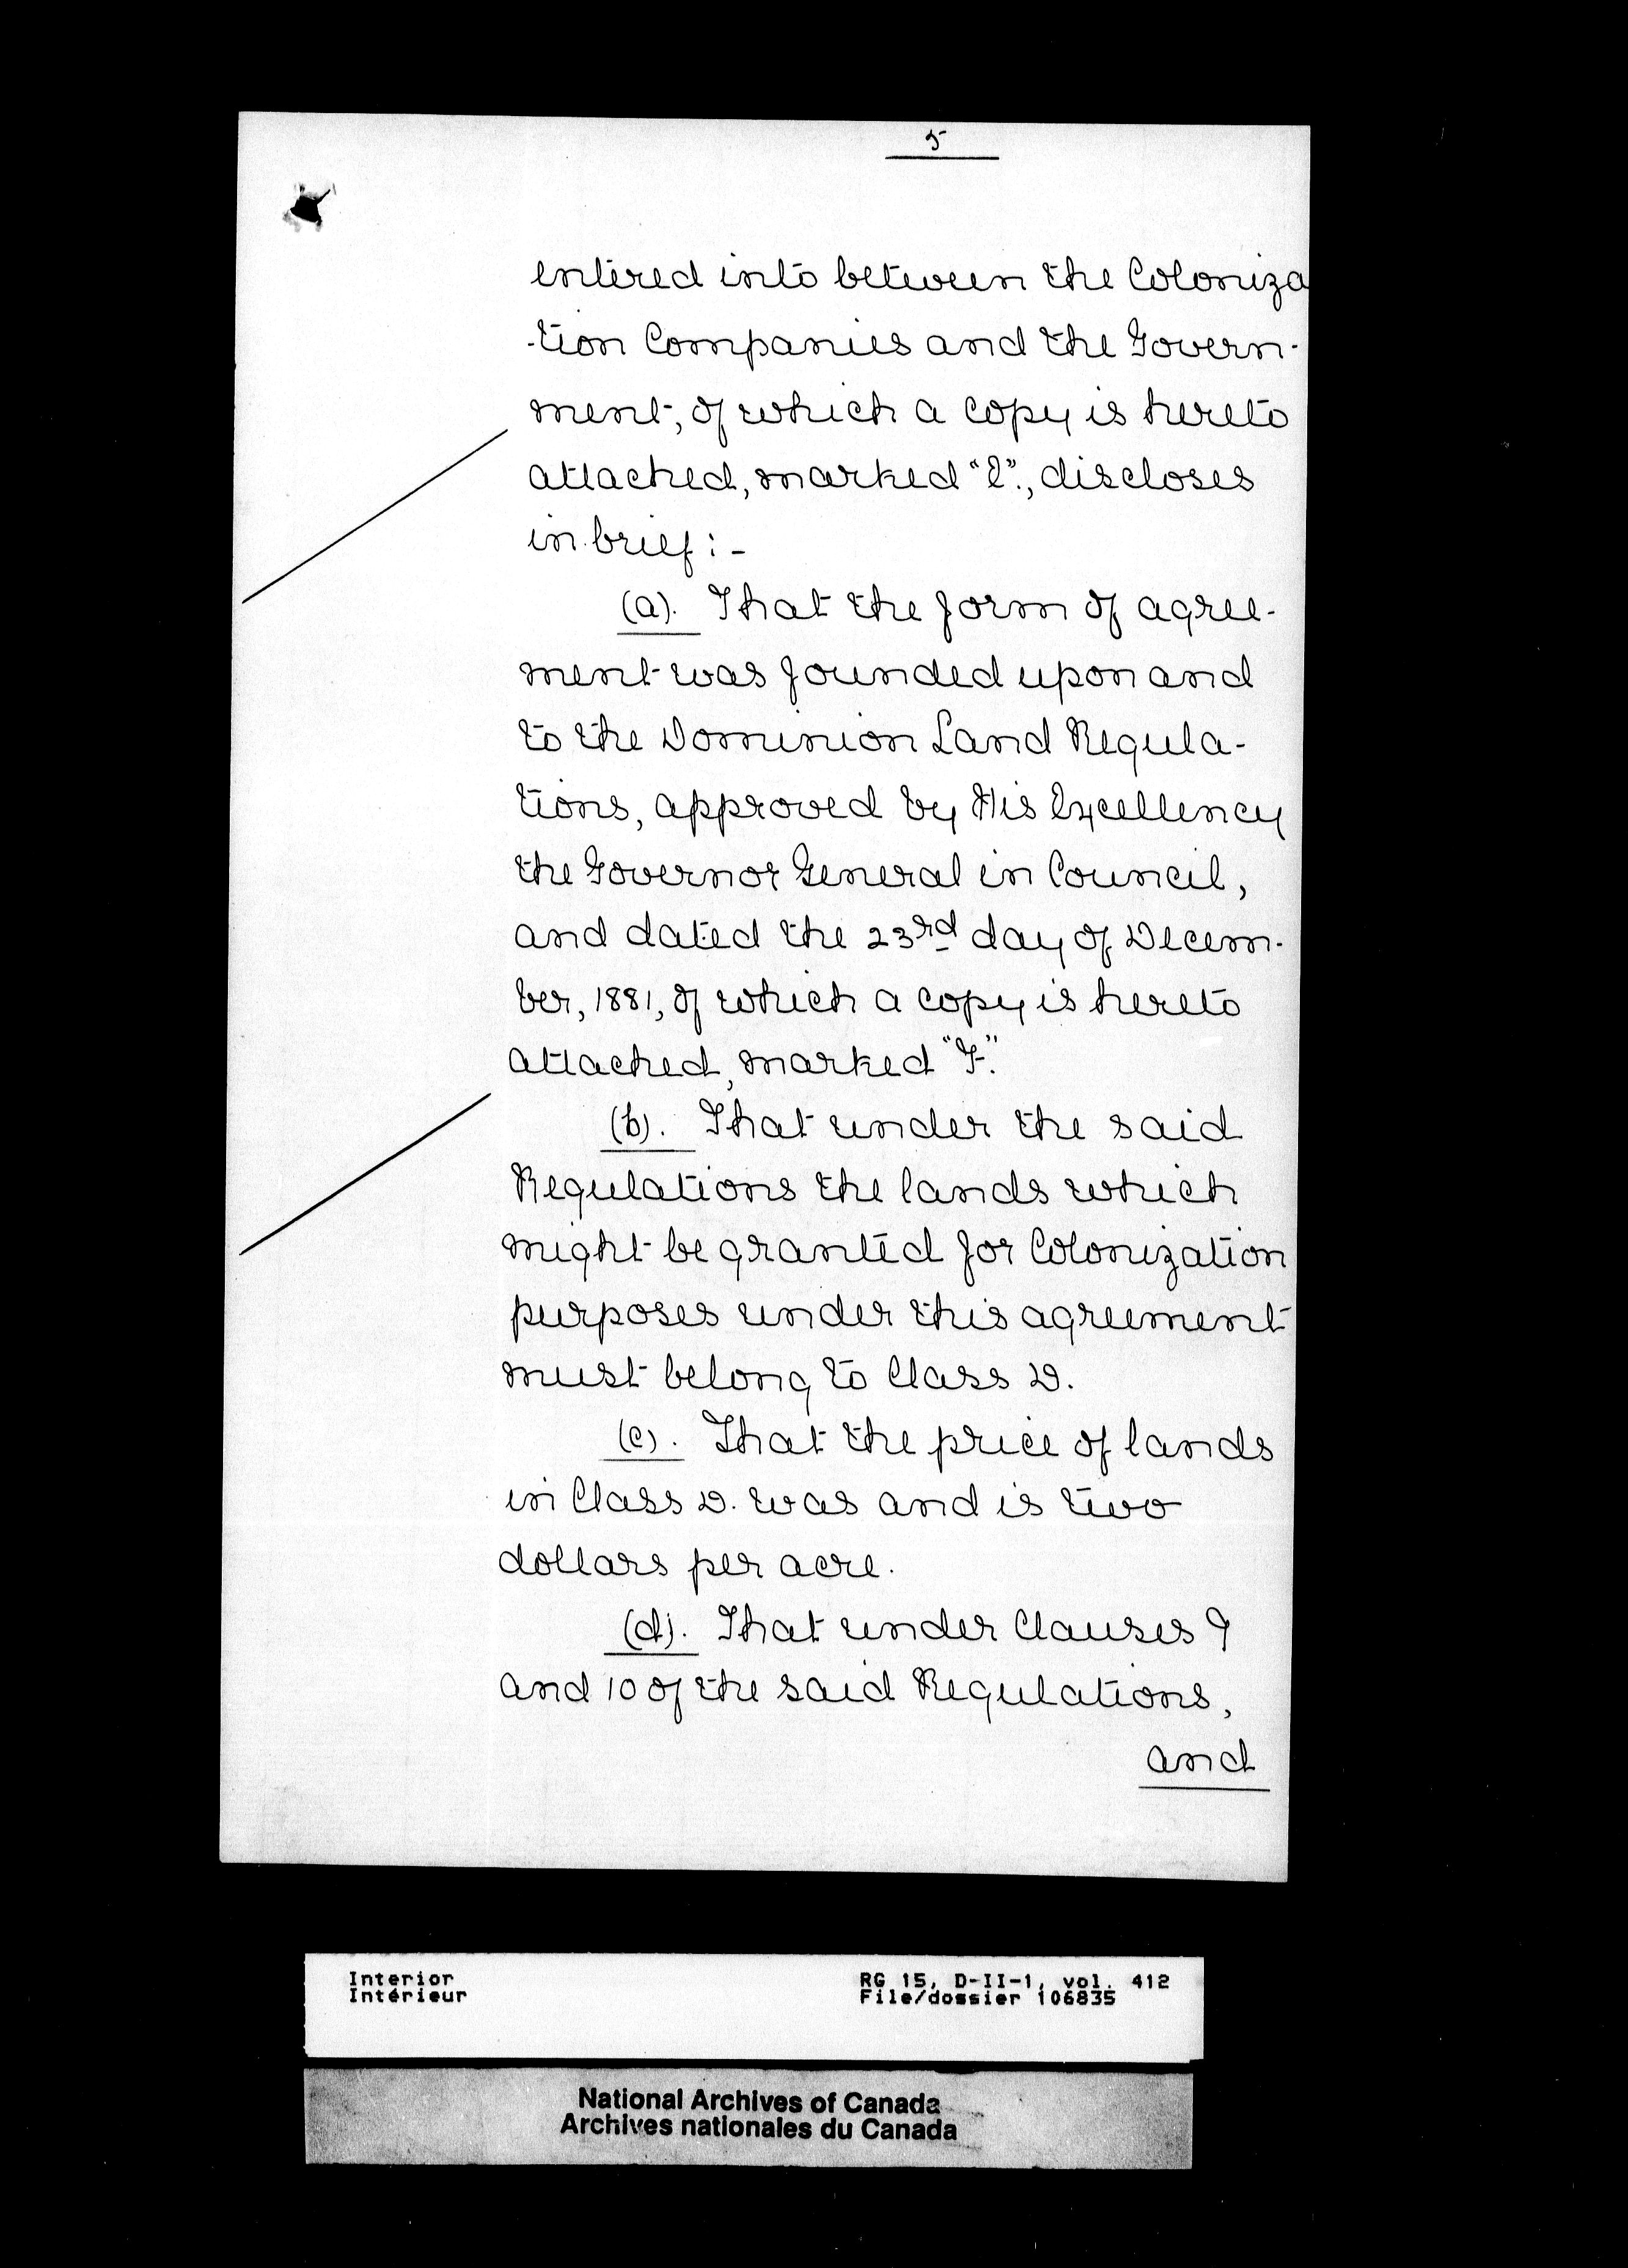 5
entered into between the Coloniza
-tion Companies and the Govern-
ment, of which a copy is hereto
attached, marked "E"., discloses
in brief :-
(a). That the form of agree-
ment was founded upon and
to the Dominion Land Regula-
tions, approved by His Excellency
the Governor General in Council,
and dated the 23rd day of Decem-
ber, 1881, of which a copy is hereto
attached, marked "F."
(b). That under the said
Regulations the lands which
might be granted for Colonization
purposes under this agreement
must belong to Class D.
(c). That the price of lands
in Class D. was and is two
dollars per acre.
(d). That under Clauses 9
and 10 of the said Regulations,
and
Interior
Intérieur
RG 15, D-II-1, vol. 412
File/dossier 106835
National Archives of Canada
Archives nationales du Canada